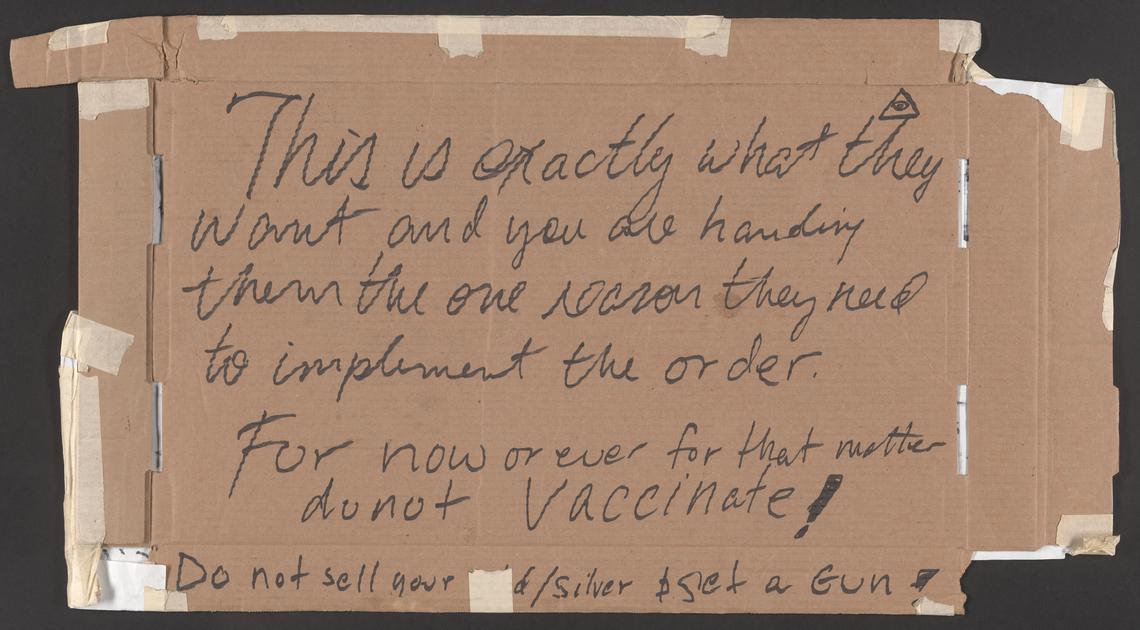 This is exactly what they
want and you are handing
them the one reason they need
to implement the order.
For now or ever for that matter
do not Vaccinate!
Do not sell your d/silver $ get a Gun